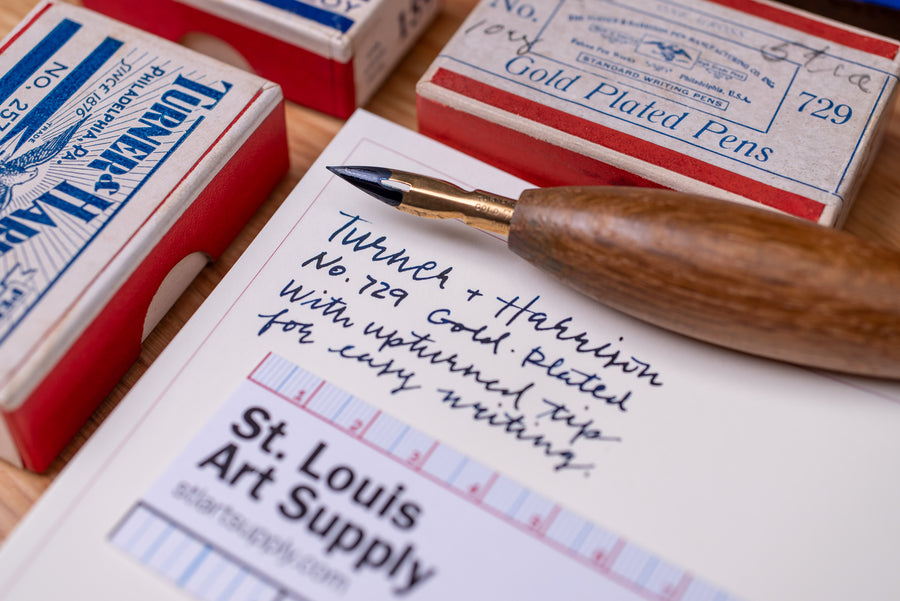 No. 257
TRADE
SINCE 1876
PHILADELPHIA-PA.
TURNER &
No.
Gold Plated Pens
729
STANDARD WRITING PENS
Philadelphia, U.S.A.
Turner + Harrison
No. 729 Gold. Plated
With upturned tip
for easy writing.
1 2 3 4 5 6 7
St. Louis
Art Supply
stlartsupply.com